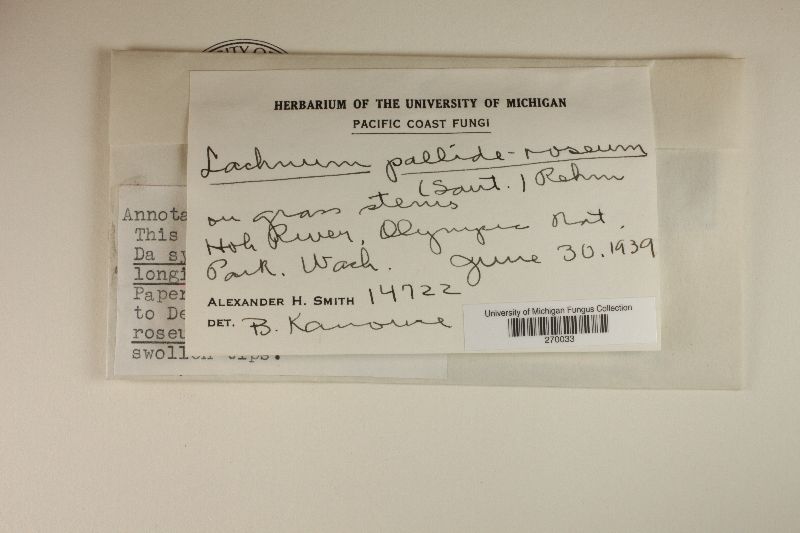 ITY OF
HERBARIUM OF THE UNIVERSITY OF MICHIGAN
PACIFIC COAST FUNGI
Lachnum pallide-roseum
(Saut.) Rehm
on grass stems
Hoh River, Olympic Nat.
Park. Wash. June 30. 1939
ALEXANDER H. SMITH 14722
DET. B. Kanouse
University of Michigan Fungus Collection
270033
Annota
This
Da sy
longi
Paper
to De
roseu
swollen tips.